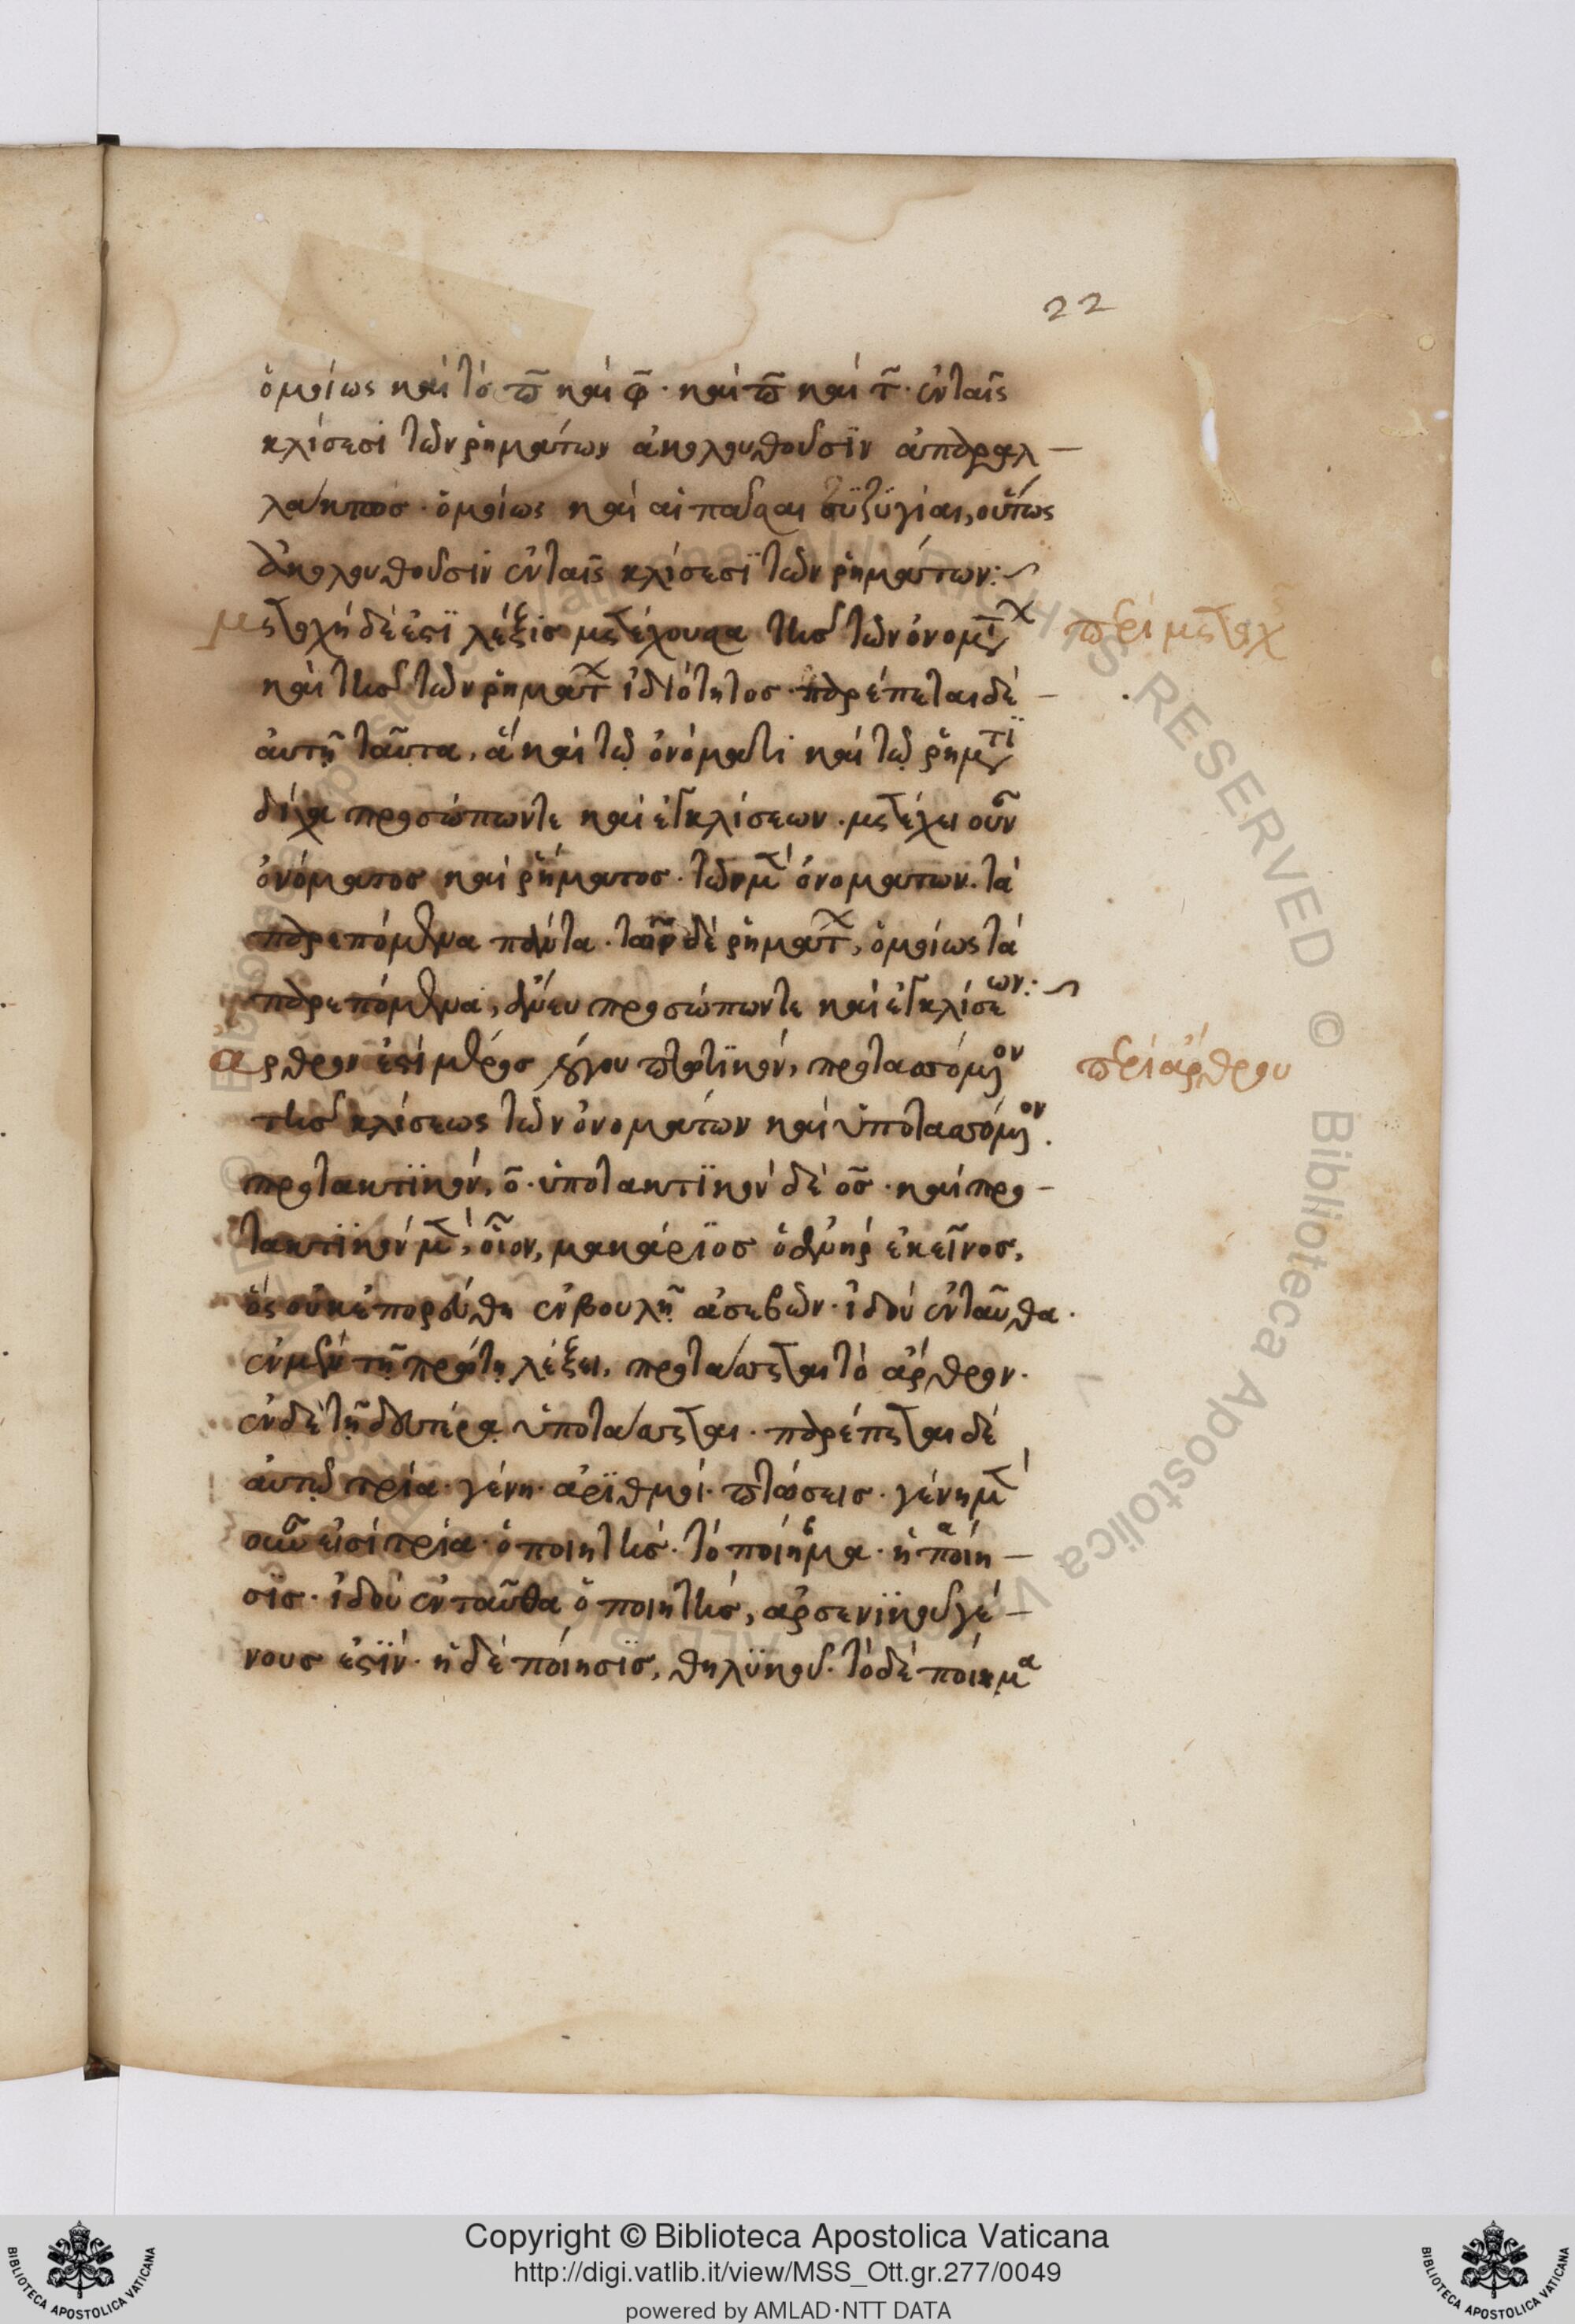 22
ὁμοίως καὶ τὸ π̄ καὶ φ̄· καὶ π̄ καὶ τ̄· ἐν ταῖς
κλίσεσι τῶν ῥημάτων ἀκολουθοῦσϊν ἀπαραλ-
λάκτως· ὁμοίως καὶ αἱ πᾶσαι συζϋγίαι, οὕτως
ἀκολουθοῦσιν ἐν ταῖς κλίσεσϊ τῶν ῥημάτων:
μετοχὴ δέ ἐστϊ λέξις μετέχουσα τῆς τῶν ὀνομάτ
περὶ μετοχ
καὶ τῆς τῶν ῥημάτ ἰδιότητος· παρέπεται δὲ
αὐτῇ ταῦτα, ἃ καὶ τῷ ὀνόματι καὶ τῷ ῥήματϊ
δίχα προσώπων τε καὶ ἐγκλίσεων. μετέχει οὖν
ὀνόματος καὶ ῥήματος· τῶν μὲν ὀνομάτων. τὰ
παρεπόμενα πάντα. τῶν δὲ ῥημάτ, ὁμοίως τὰ
παρεπόμενα, ἄνευ προσώπων τε καὶ ἐγκλίσεων:
ἄρθρον ἐστὶ μέρος λόγου πτωτϊκὸν, προτασσόμενον
περὶ ἄρθρου
τῆς κλίσεως τῶν ὀνομάτων καὶ ὑποτασσόμενον.
προτακτϊκὸν, ὁ· ὑποτακτϊκὸν δὲ ὃς· καὶ προ-
τακτϊκὸν μὲν, οἷον, μακάρϊος ὁ ἀνὴρ ἐκεῖνος,
ὃς οὐκ ἐπορεύθη ἐν βουλῇ ἀσεβῶν· ἰδοὺ ἐνταῦθα.
ἐν μὲν τῇ πρώτῃ λέξει, προτάσσεται τὸ ἄρθρον.
ἐν δὲ τῇ δευτέρᾳ ὑποτάσσεται· παρέπεται δὲ
αὐτῷ τρία· γένη· ἀρϊθμοί· πτώσεις· γένη μὲν
οὖν εἰσὶ τρία· ὁ ποιητής· τὸ ποίημα· ἡ ποίη-
σϊς· ἰδοὺ ἐνταῦθα ὁ ποιητής, ἀρσενϊκοῦ γέ-
νους ἐστϊν· ἡ δὲ ποίησϊς, θηλϋκοῦ. τὸ δὲ ποίημα
Copyright © Biblioteca Apostolica Vaticana
http://digi.vatlib.it/view/MSS_Ott.gr.277/0049
powered by AMLAD·NTT DATA